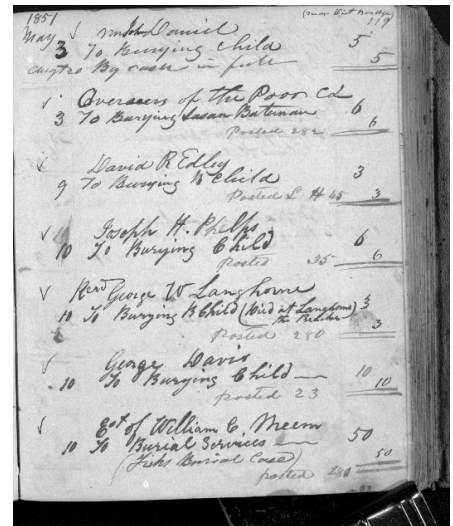 1851
(near Wist Bondge)
119
May √ Mr Jno Daniel 5
3 To Burying Child 5
Augt 20 By cash in full
√ Overseers of the Poor C L 6
3 To Burying Susan Bateman 6
Posted 282
√ David R Edley 3
9 To Burying N Child 3
Posted L H 45
√ Joseph H. Phelps 6
10 To Burying Child 6
posted 35
√ Revd George W Langhorne 3
10 To Burying B Child (Died at Langhorns the Preacher) 3
Posted 280
√ George Davis 10
10 To Burying Child 10
posted 23
√ Est of William C. Meem 50
10 To Burial Services 50
(Fisks Burial Case)
posted 280